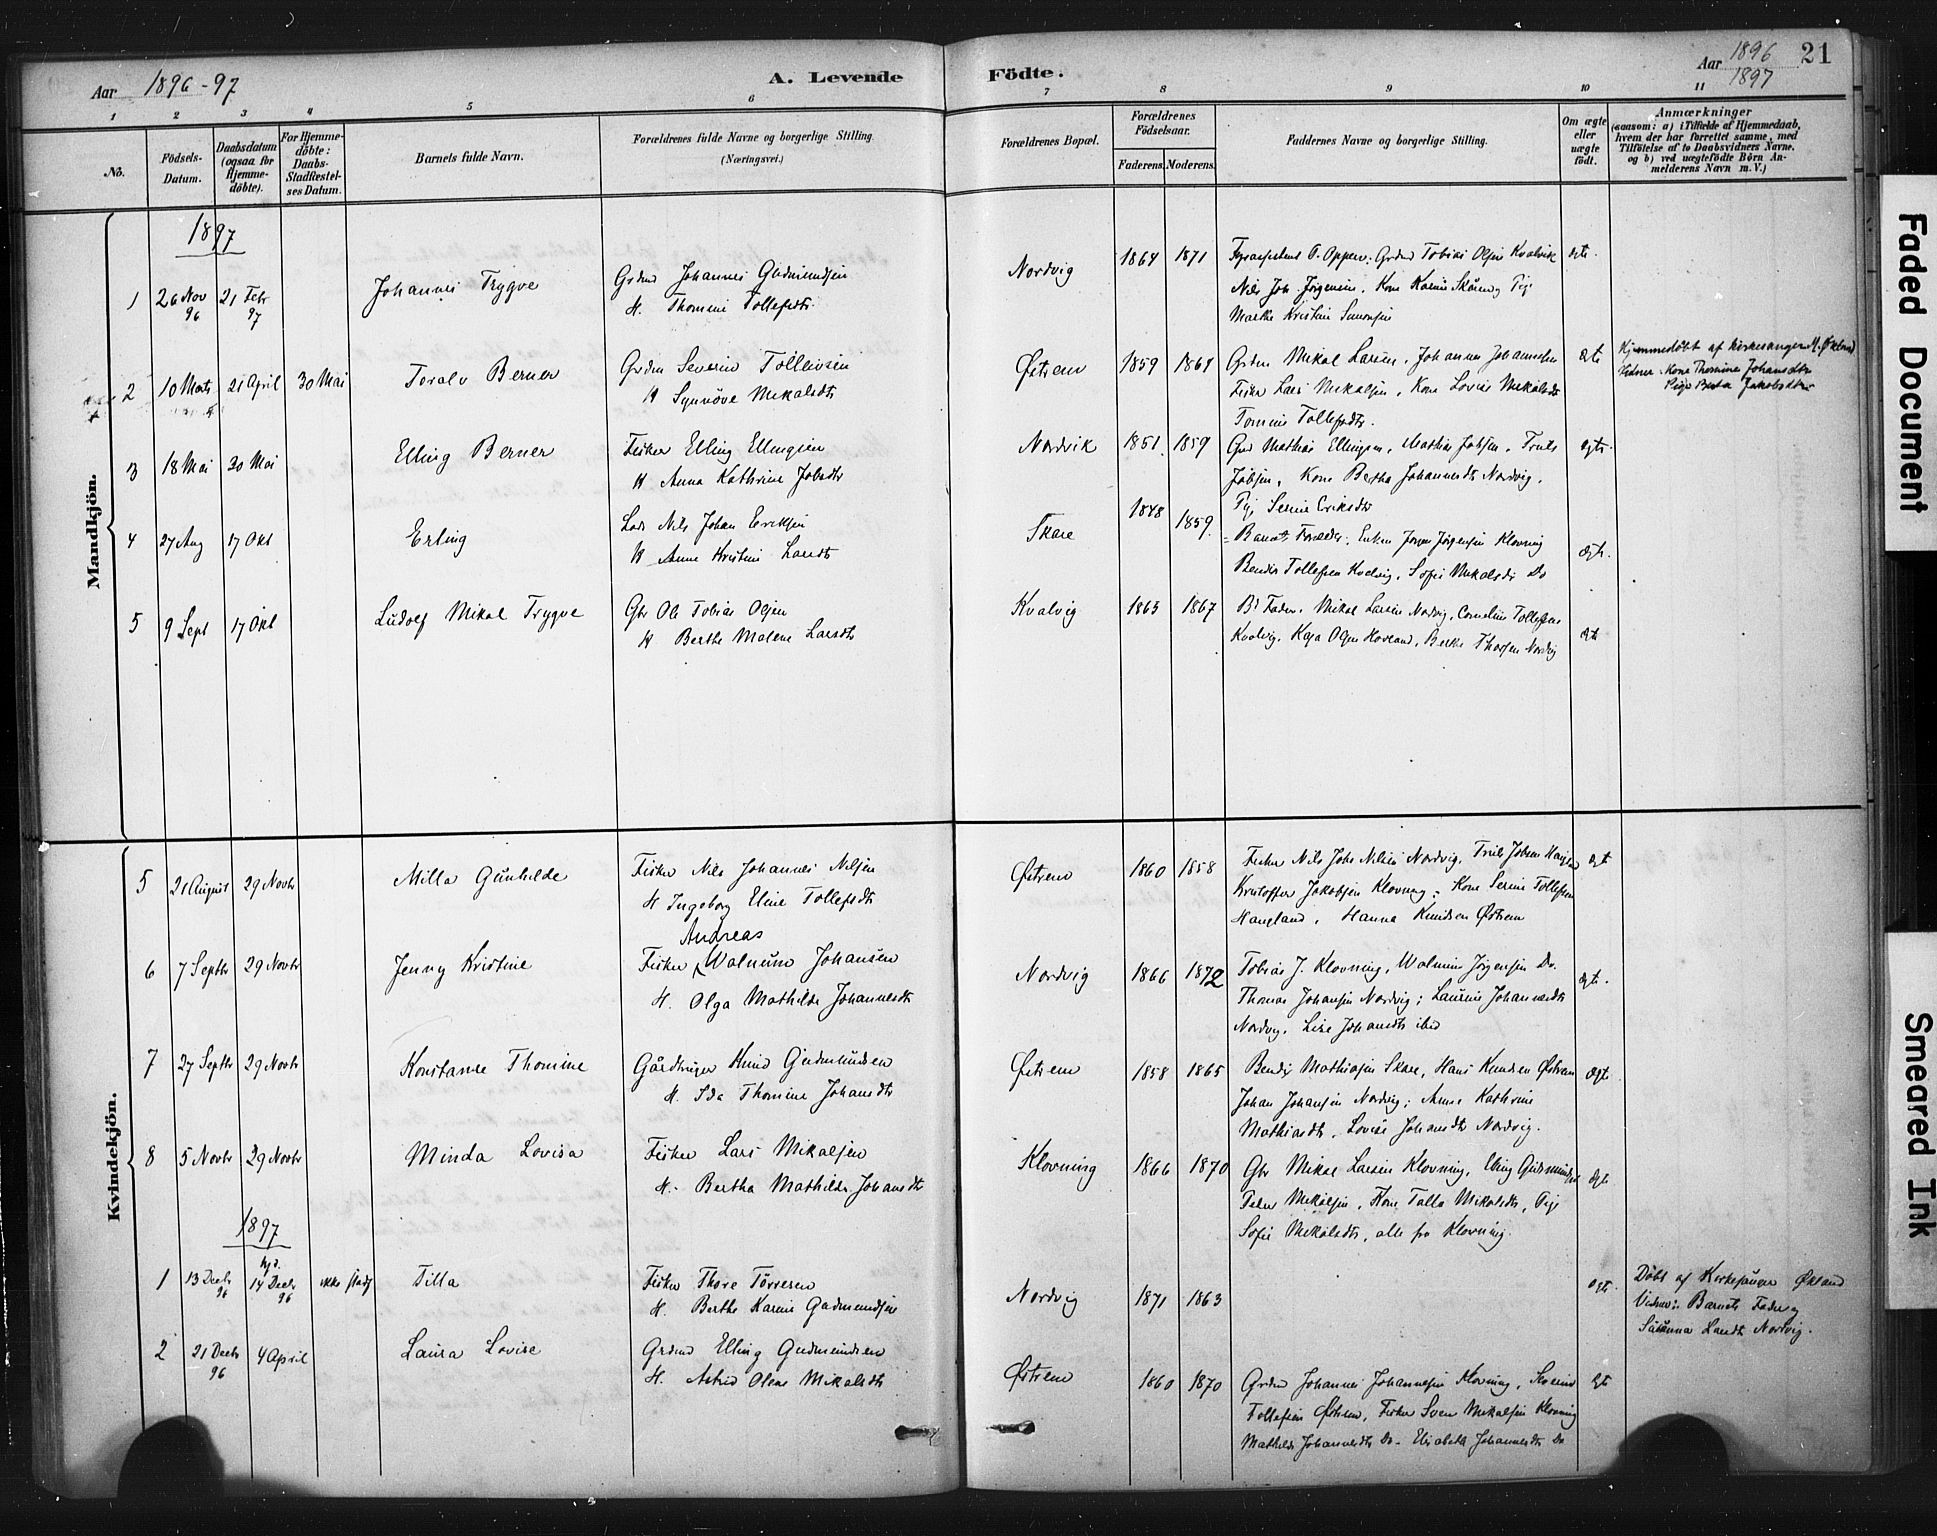 Aar 1896-97
A. Levende
Födte.
Aar 1896
1897
21
1 2 3 4 5 6 7 8 9 10 11
No.
Födsels-Datum.
Daabsdatum (ogsaa for Hjemme-döbte).
For Hjemme-döbte: Daabs-Stadfestel-ses Datum.
Barnets fulde Navn.
Forældrenes fulde Navne og borgerlige Stilling.
(Næringsvei.)
Forældrenes Bopæl.
Forældrenes Födselsaar.
Faderens. Moderens.
Faddernes Navne og borgerlige Stilling.
Om ægte eller uægte födt.
Anmærkninger
(saasom: a) i Tilfælde af Hjemmedaab,
hvem der har forrettet samme, med
Tilföielse af to Daabsvidners Navne,
og b) ved uægtefödte Börn An-
melderens Navn m.V.)
Mandkjön.
1897
1 26 Nov 96 21 Febr 97 Johannes Trygve Grdmd Johannes Gudmundsen
H. Thomine Tollefsdtr
Nordvig 1864 1871 Tobias Olsen Kvalvik ægte.
Nils Joh. Jörgensen, Kone
Marthe Kristine Simonsen
2 10 Marts 21 April 30 Mai Toralv Berner Grdm Severin Tolleivsen
H Synnöve Mikalsdtr
Østrem 1859 1864 Grdm Mikal Larsen, Johannes Johannesen ægte
Fisker Lars Mikalsen, Kone Lovise Mikalsdtr
Tomine Tollefsdtr.
Hjemmedöbt af Kirkesanger M. Økland
Vidner: Kone Thomine Johansdtr
Pige Berta Jakobsdtr
3 18 Mai 30 Mai Elling Berner Fisker Elling Ellingsen
H Anna Kathrine Jobsdtr
Nordvik 1851 1859 Gmd Mathias Ellingsen, Mathias Jobsen, Truls ægte.
Jobsen, Kone Bertha Johannesdtr Nordvig,
Pig. Serine Eriksdtr
4 27 Aug 17 Okt Erling Lods Nils Johan Eriksen
H Anne Kristine Larsdtr
Skare 1848 1859. Barnets Forældre, Enkem Jörgen Jörgensen Klovning
Bendix Tollefsen Kvalvig, Sofie Mikalsdtr Do ægte.
5 9 Sept 17 Okt Ludolf Mikal Trygve Gbr Ole Tobias Olsen
H Berthe Malene Larsdtr
Kvalvig 1863 1867 Bs Fader, Mikal Larsen Nordvig, Cornelius Tollefsen
Kvalvig, Kaja Olsen Hovland, Berthe Thorsen Nordvig ægte
Kvindekjön.
5 21 August 29 Novbr Milla Gunhilde Fisker Nils Johannes Nilsen
H Ingeborg Eline Tollefsdtr
Østrem 1860 1858 Fisker Nils Johs Nilsen Nordvig, Truls Jobsen ægte
Kristoffer Jakobsen Klovning; Kone Serine Tollefsen
Haugland, Hanna Knudsen Østrem
6 7 Septbr 29 Novbr Jenny Kristine Andreas
Fisker Walnum Johansen
H. Olga Mathilde Johannesdtr
Nordvig 1866 1872 Tobias J. Klovning, Walnum Jörgensen Do. ægte.
Thomas Johansen Nordvig; Laurine Johannesdtr
Nordvig, Lise Johansdtr ibid
7 27 Septbr 29 Novbr Konstanse Thomine Gårdbruger Knud Gudmundsen
H. Ida Thomine Johansdtr
Østrem 1858 1865 Bendix Mathiasen Skare, Hans Knudsen Østrem ægte
Johan Johansen Nordvig; Anne Kathrine
Mathiasdtr, Lovise Johansdtr Nordvig.
8 5 Novbr 29 Novbr Minda Lovisa Fisker Lars Mikalsen
H. Bertha Mathilde Johansdtr
Klovning 1866 1870 Gbr Mikal Larsen Klovning, Elling Gudmundsen ægte
Peder Mikalsen, Kone Talla Mikalsdtr, Pige
Sofie Mikalsdtr, alle fra Klovning.
1897
1 13 Decbr 96 hjd. 14 Decbr 96 ikke stadf Tilla Fisker Thore Törresen
H. Berthe Karine Gudmundsen
Nordvig 1871 1863 ægte.
Döbt af Kirkesanger Økland
Vidner: Barnets Fader og
Susanna Larsdtr Nordvig.
2 21 Decbr 96 4 April Laura Lovise Grdmd Elling Gudmundsen
H. Astrid Olene Mikalsdtr
Østrem 1860 1870 Grdm Johannes Johannesen Klovning, Severin ægte
Tollefsen Østrem, Fisker Sven Mikalsen Klovning
Mathilde Johannesdtr Do. Elisabeth Johannesdtr Do
Faded Document
Smeared Ink